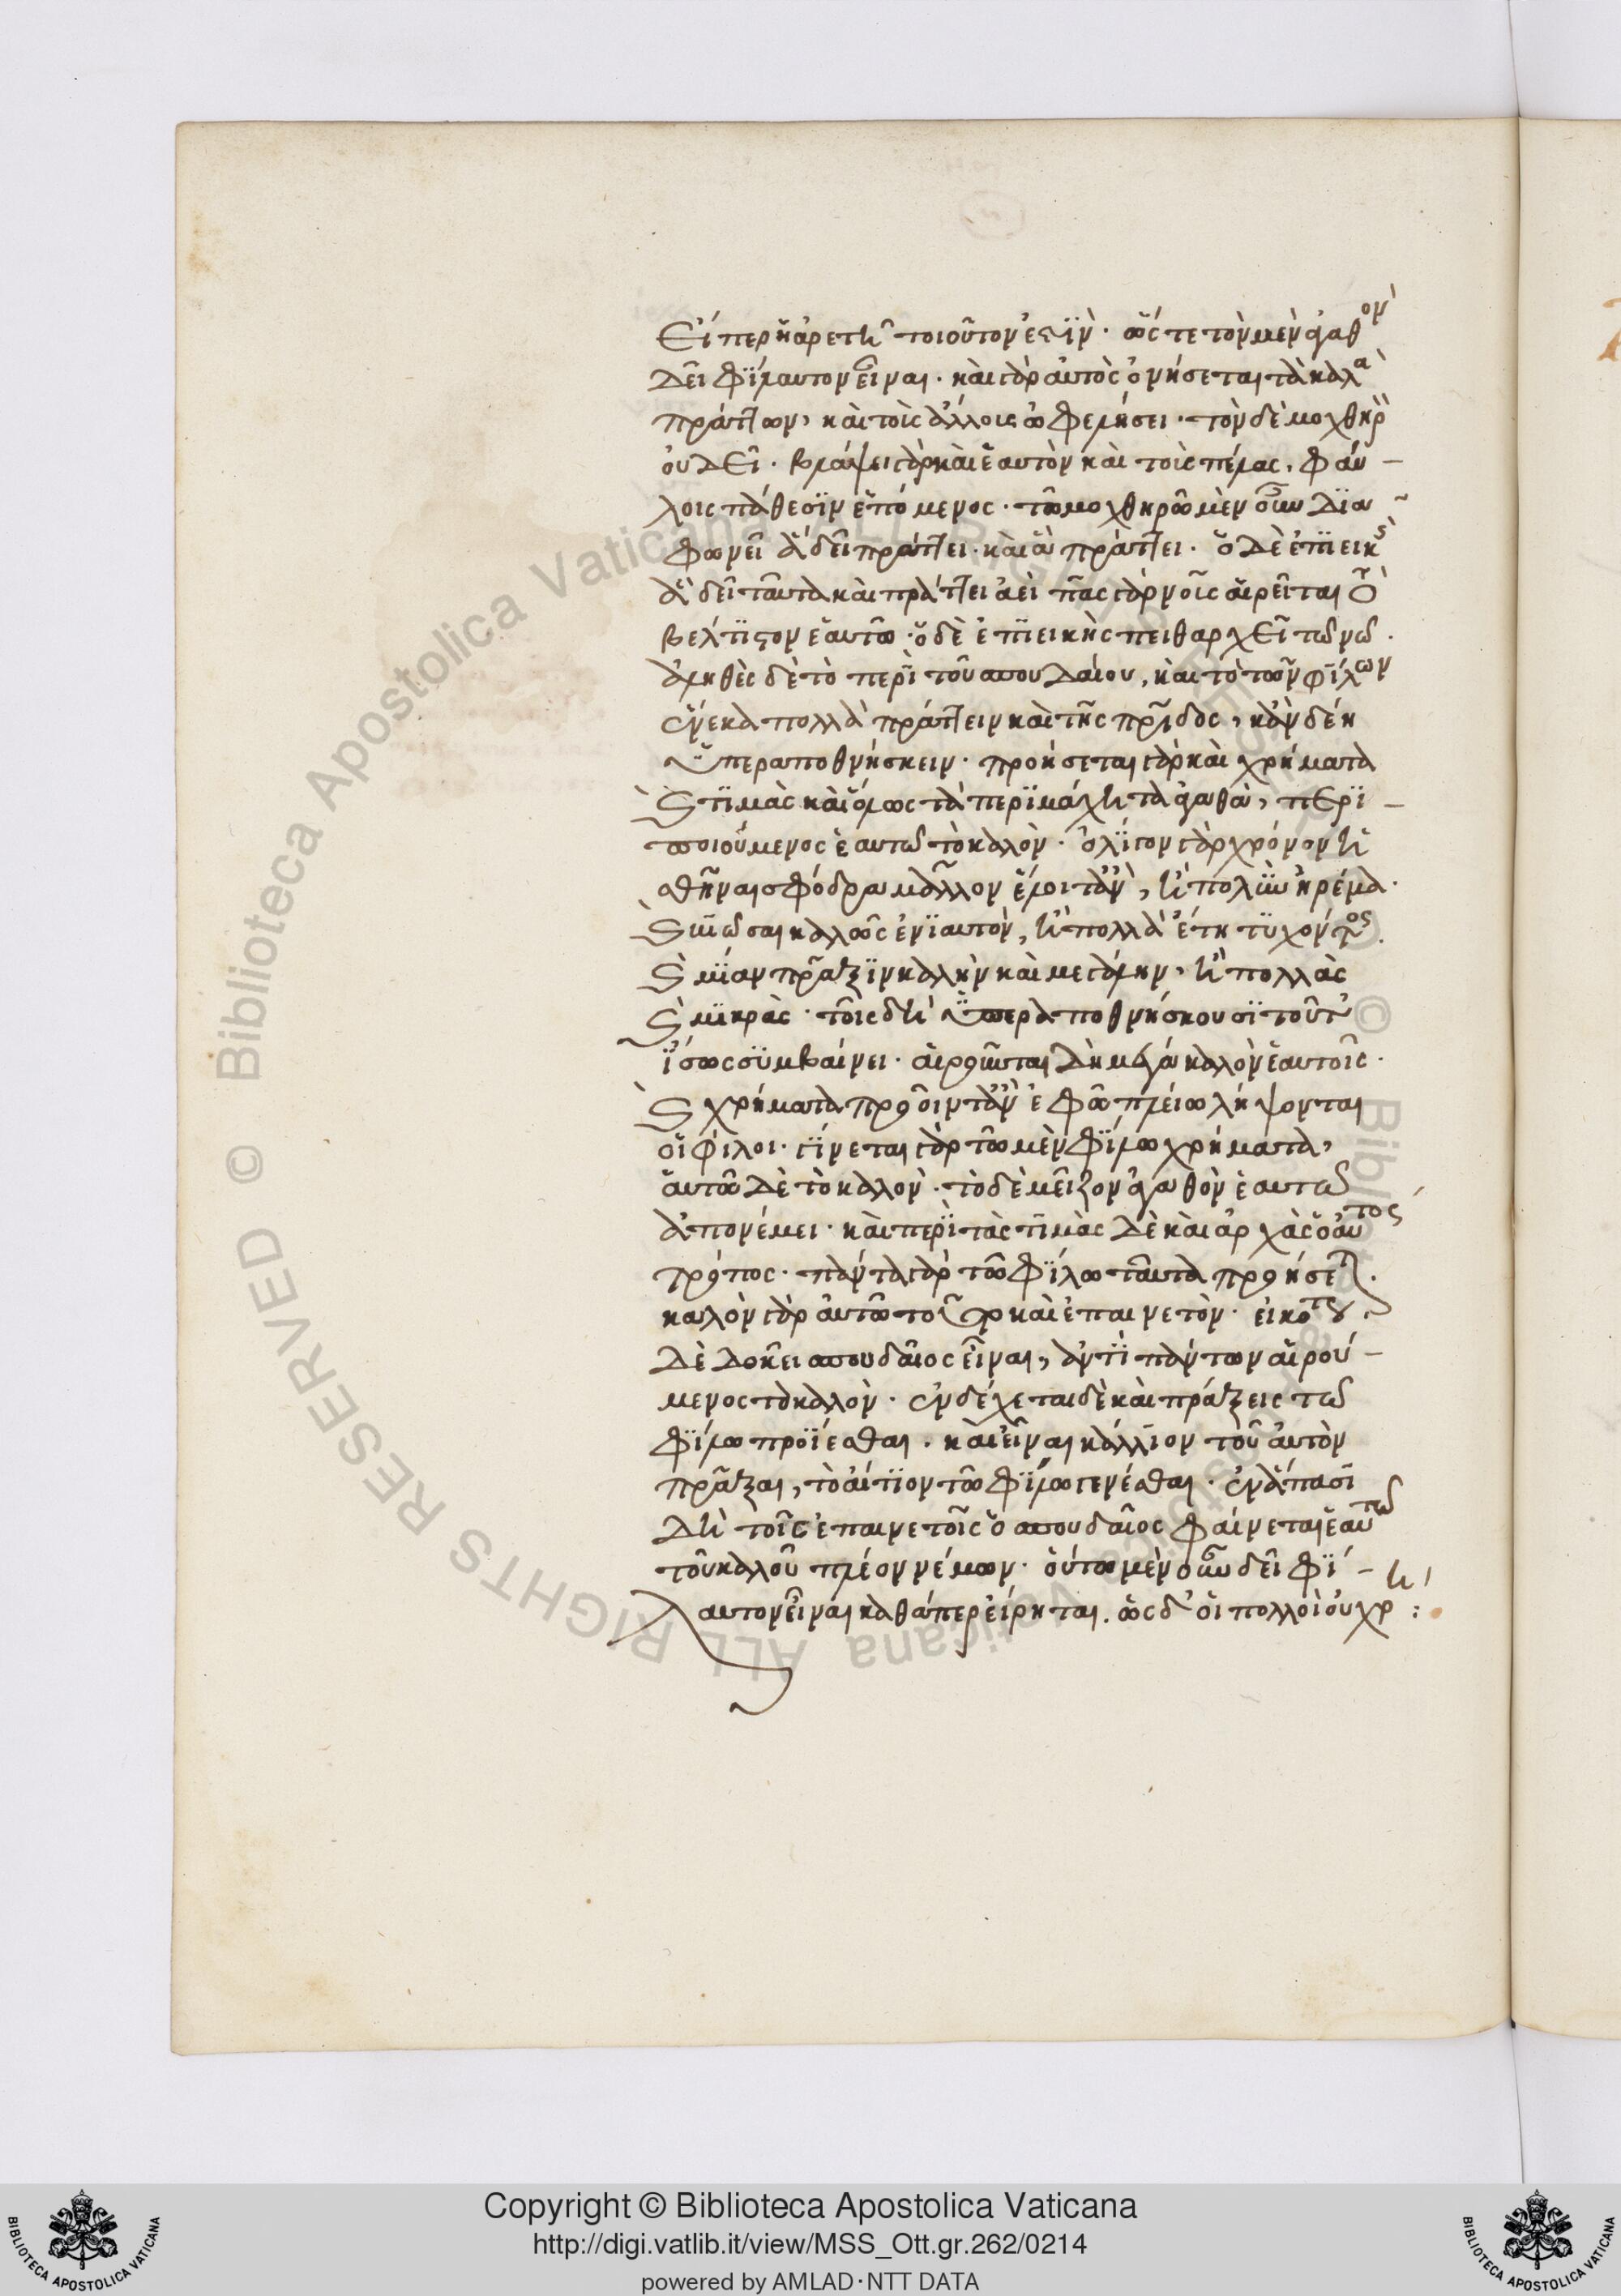 εἴπερ ἡ ἀρετὴ τοιοῦτον ἐστὶν· ὥστε τὸν μὲν ἀγαθὸν
δεῖ φίλαυτον εἶναι· καὶ γὰρ αὐτὸς ὀνήσεται τὰ καλὰ
πράττων, καὶ τοὺς ἄλλους ὠφελήσει· τὸν δὲ μοχθηρὸν
οὐ δεῖ· βλάψει γὰρ καὶ ἑαυτὸν καὶ τοὺς πέλας, φαύ-
λοις πάθεσιν ἑπόμενος· τῶ μοχθηρῶ μὲν οὖν δια
φωνεῖ ἃ δεῖ πράττειν· καὶ ἃ πράττει· ὁ δὲ ἐπιεικὴς
ἃ δεῖ ταῦτα καὶ πράττει ἀεὶ πᾶς γὰρ νοῦς αἱρεῖται τὸ
βέλτιστον ἑαυτῶ· ὁ δὲ ἐπιεικὴς πειθαρχεῖ τῶ νῶ.
ἀληθὲς δὲ τὸ περὶ τοῦ σπουδαίου, καὶ τὸ τῶν φίλων
ἕνεκα πολλὰ πράττειν καὶ τῆς πατρίδος, κἂν δέη
ὑπεραποθνήσκειν· προήσεται γὰρ καὶ χρήματα
καὶ τιμὰς καὶ ὅλως τὰ περιμάχητα ἀγαθὰ, περι-
ποιούμενος ἑαυτῶ τὸ καλὸν· ὀλίγον γὰρ χρόνον ἡ
σθῆναι σφόδρα μᾶλλον ἕλοιτ' ἂν, ἢ πολὺν ἠρέμα·
καὶ βιῶσαι καλῶς ἐνιαυτὸν, ἢ πολλὰ ἔτη τυχόντως.
καὶ μίαν πρᾶξιν καλὴν καὶ μεγάλην, ἢ πολλὰς
καὶ μικρὰς· τοῖς δὴ ὑπεραποθνήσκουσι τοῦτ'
ἴσως συμβαίνει· αἱροῦνται δὴ μέγα καλὸν ἑαυτοῖς·
καὶ χρήματα προοῖντ' ἂν ἐφ' ὧ πλείω λήψονται
οἱ φίλοι· γίνεται γὰρ τῶ μὲν φίλω χρήματα,
αὐτῶ δὲ τὸ καλὸν· τὸ δὲ μεῖζον ἀγαθὸν ἑαυτῶ
ἀπονέμει· καὶ περὶ τὰς τιμὰς δὲ καὶ ἀρχὰς ὁ αὐτὸς
τρόπος· πάντα γὰρ τῶ φίλω ταῦτα προήσεται.
καλὸν γὰρ αὐτῶ τοῦτο καὶ ἐπαινετὸν· εἰκότως
δὲ δοκεῖ σπουδαῖος εἶναι, ἀντὶ πάντων αἱρού-
μενος τὸ καλὸν· ἐνδέχεται δὲ καὶ πράξεις τῶ
φίλω προΐεσθαι· καὶ εἶναι κάλλιον τοῦ αὐτὸν
πρᾶξαι, τὸ αἴτιον τῶ φίλω γενέσθαι· ἐν ἅπασι
δὴ τοῖς ἐπαινετοῖς ὁ σπουδαῖος φαίνεται ἑαυτῶ
τοῦ καλοῦ πλέον νέμων· οὕτω μὲν οὖν δεῖ φί-
λαυτον εἶναι καθάπερ εἴρηται. ὡς δ' οἱ πολλοὶ οὐ χρή:
Copyright © Biblioteca Apostolica Vaticana
http://digi.vatlib.it/view/MSS_Ott.gr.262/0214
powered by AMLAD·NTT DATA